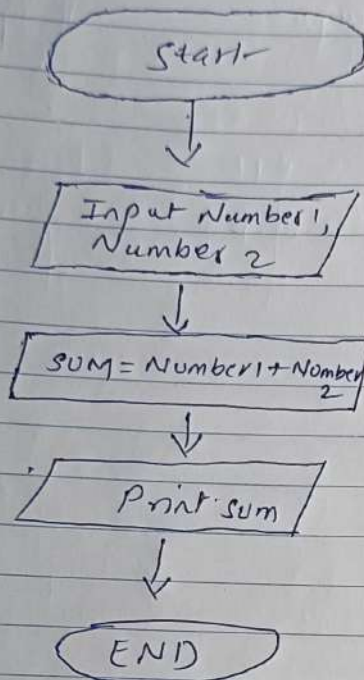 Start
Input Number1,
Number 2
SUM = Number1 + Nomber
2
Print sum
END